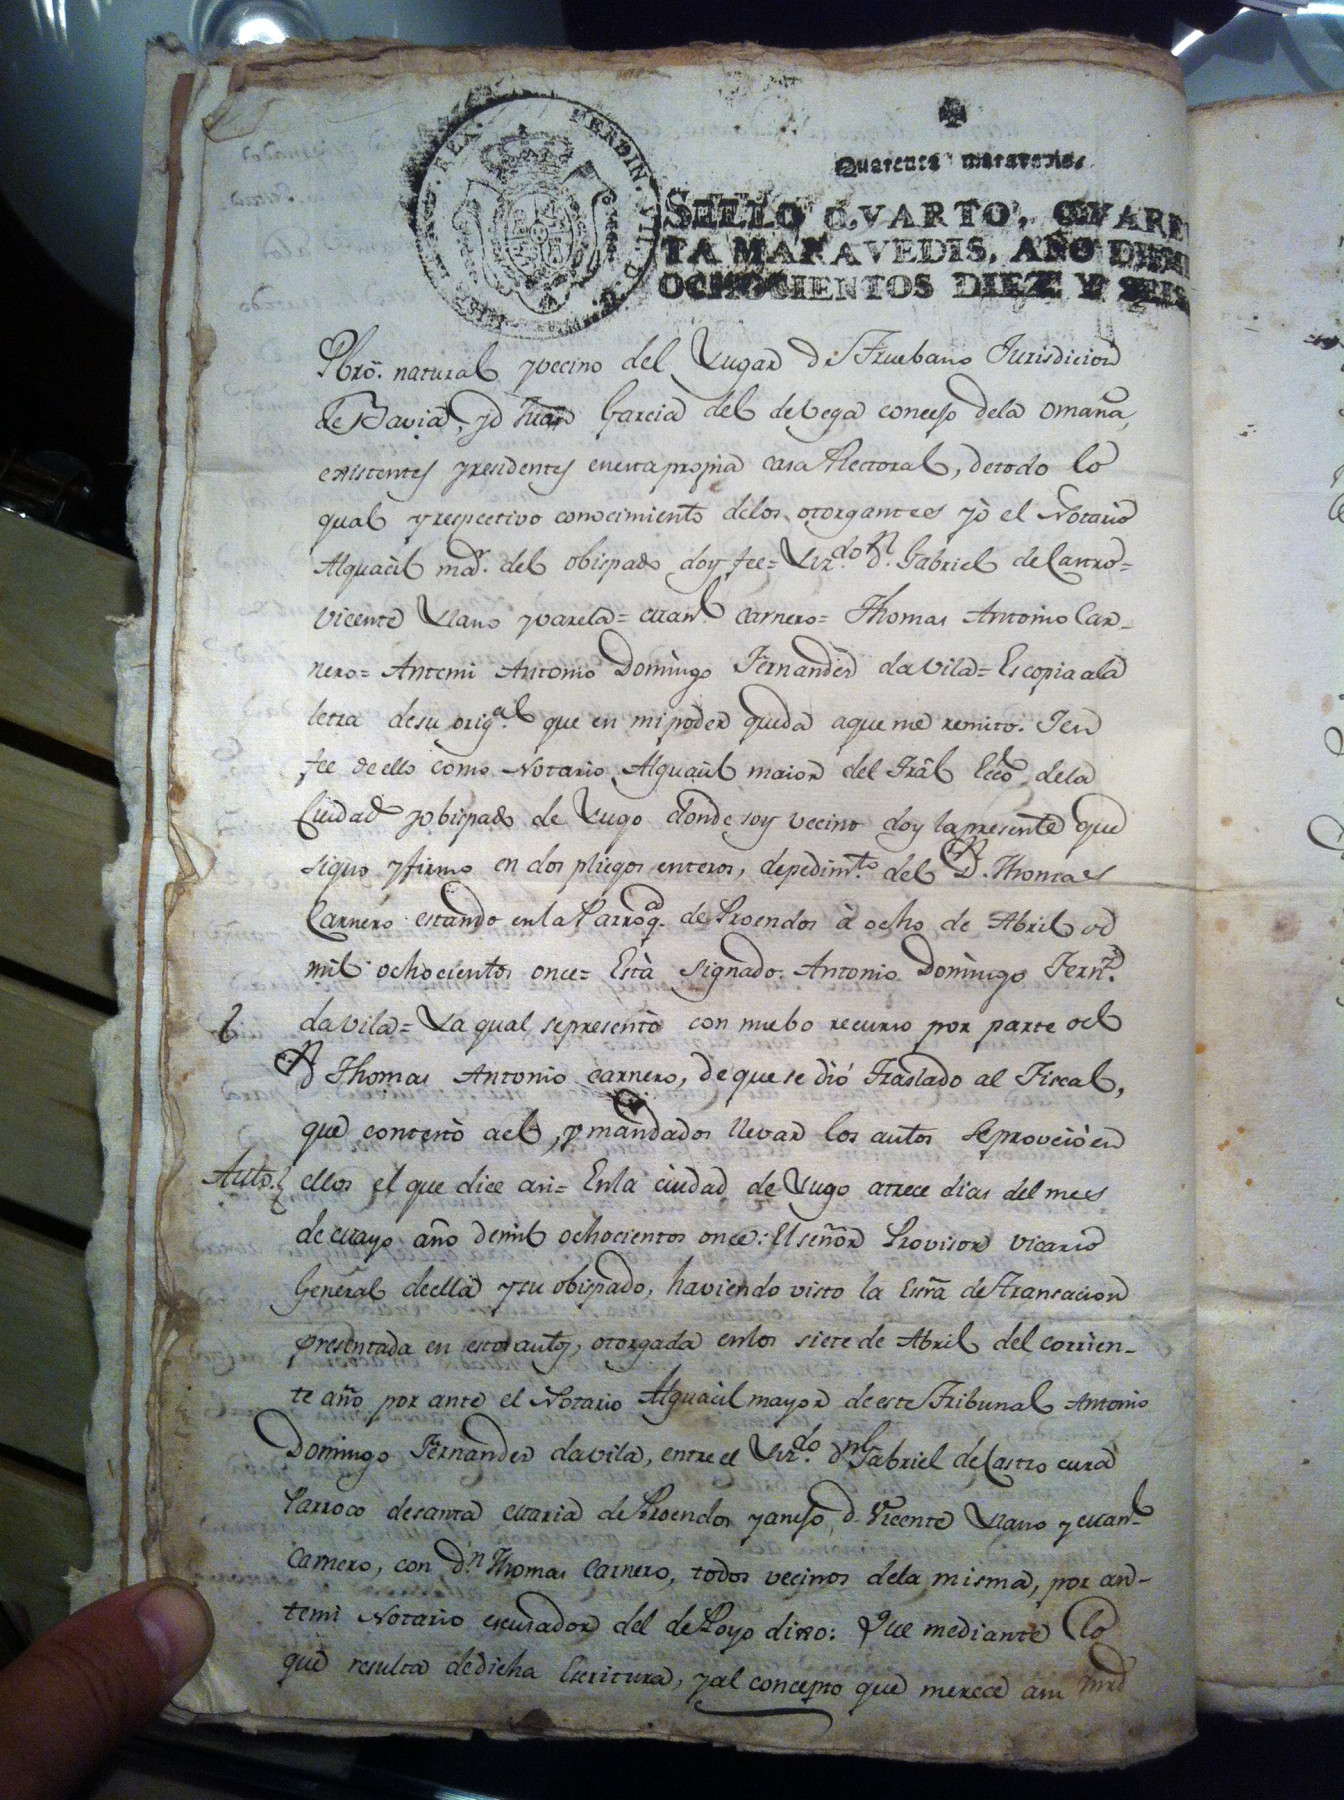 REX. FERDIN. VII. D. G.
Quarenta maravedis.
SELLO CVARTO, CVAREN
TA MARAVEDIS, AÑO DE MIL
OCHOCIENTOS DIEZ Y SEIS
Pbrō. natural yvecino del Lugar de Truebano Jurisdicion
de Bavia, yd Juan Garcia del de Vega concejo dela Omaña,
existentes yresidentes enesta propia casa Rectoral, detodo lo
qual yrespectivo conocimiento delos otorgantes yò el Notario
Alguacil mōr. del obispado doy fee= Lizdo. Dn. Gabriel de Castro=
Vicente Llano yvarela= Manl. Carnero= Thomas Antonio Car-
nero= Antemi Antonio Domingo Fernandez davila= Escopia ala
letra desu origal. que en mi poder queda aque me remito. Yen
fee deello como Notario Alguacil maior del Trâl Eccō. dela
Ciudad yobispado de Lugo donde soy vecino doy lapresente que
signo yfirmo en dos pliegos enteros, depedimto. del Dn. Thomas
Carnero estando enla Parroqa. de Proendos à ocho de Abril de
mil ochocientos once= Està signado: Antonio Domingo Fernz.
davila= La qual sepresentò con nuebo recurso por parte del
Dn Thomas Antonio Carnero, de que se diò Traslado al Fiscal,
que contestò ael, y mandados llevar los autos Seproveiò en
Auto. ellos el que dice asi= Enla ciudad de Lugo atrece dias del mes
de Mayo año demil ochocientos once: El señor Provisor vicario
General deella ysu obispado, haviendo visto la Escrā de Transacion
presentada en estos autos, otorgada enlos siete de Abril del corrien-
te año por ante el Notario Alguacil mayor de este Tribunal Antonio
Domingo Fernandez davila, entre el Lizdo. Dn Gabriel de Castro cura
Parroco desanta Maria de Proendos yanejo, d. Vicente Llano y Manl.
Carnero, con Dn Thomas Carnero, todos vecinos dela misma, por an-
temi Notario escusador del de Poyo dixo: Que mediante lo
que resulta dedicha Escritura, yal concepto que merece asu mrd